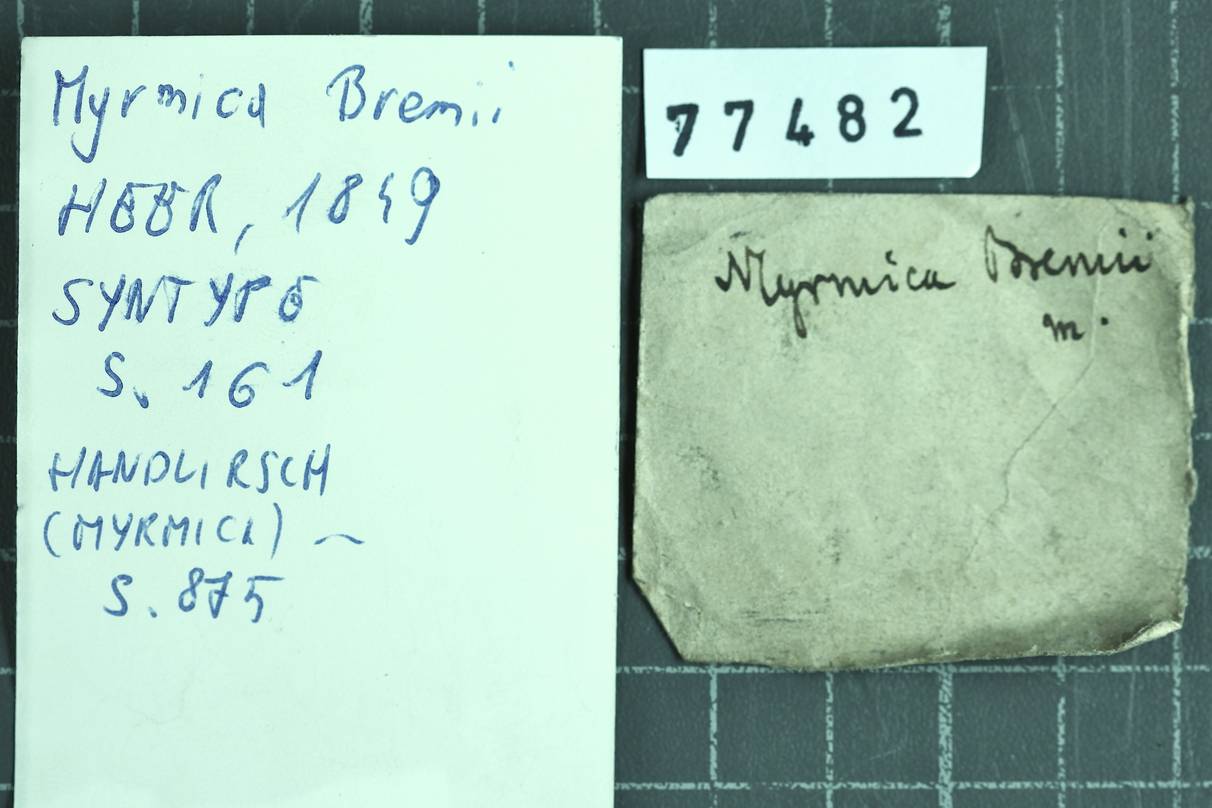 Myrmica Bremii
HEER, 1849
SYNTYPE
S. 161
HANDLIRSCH
(MYRMICA) ~
S. 875
77482
Myrmica Bremii
m.